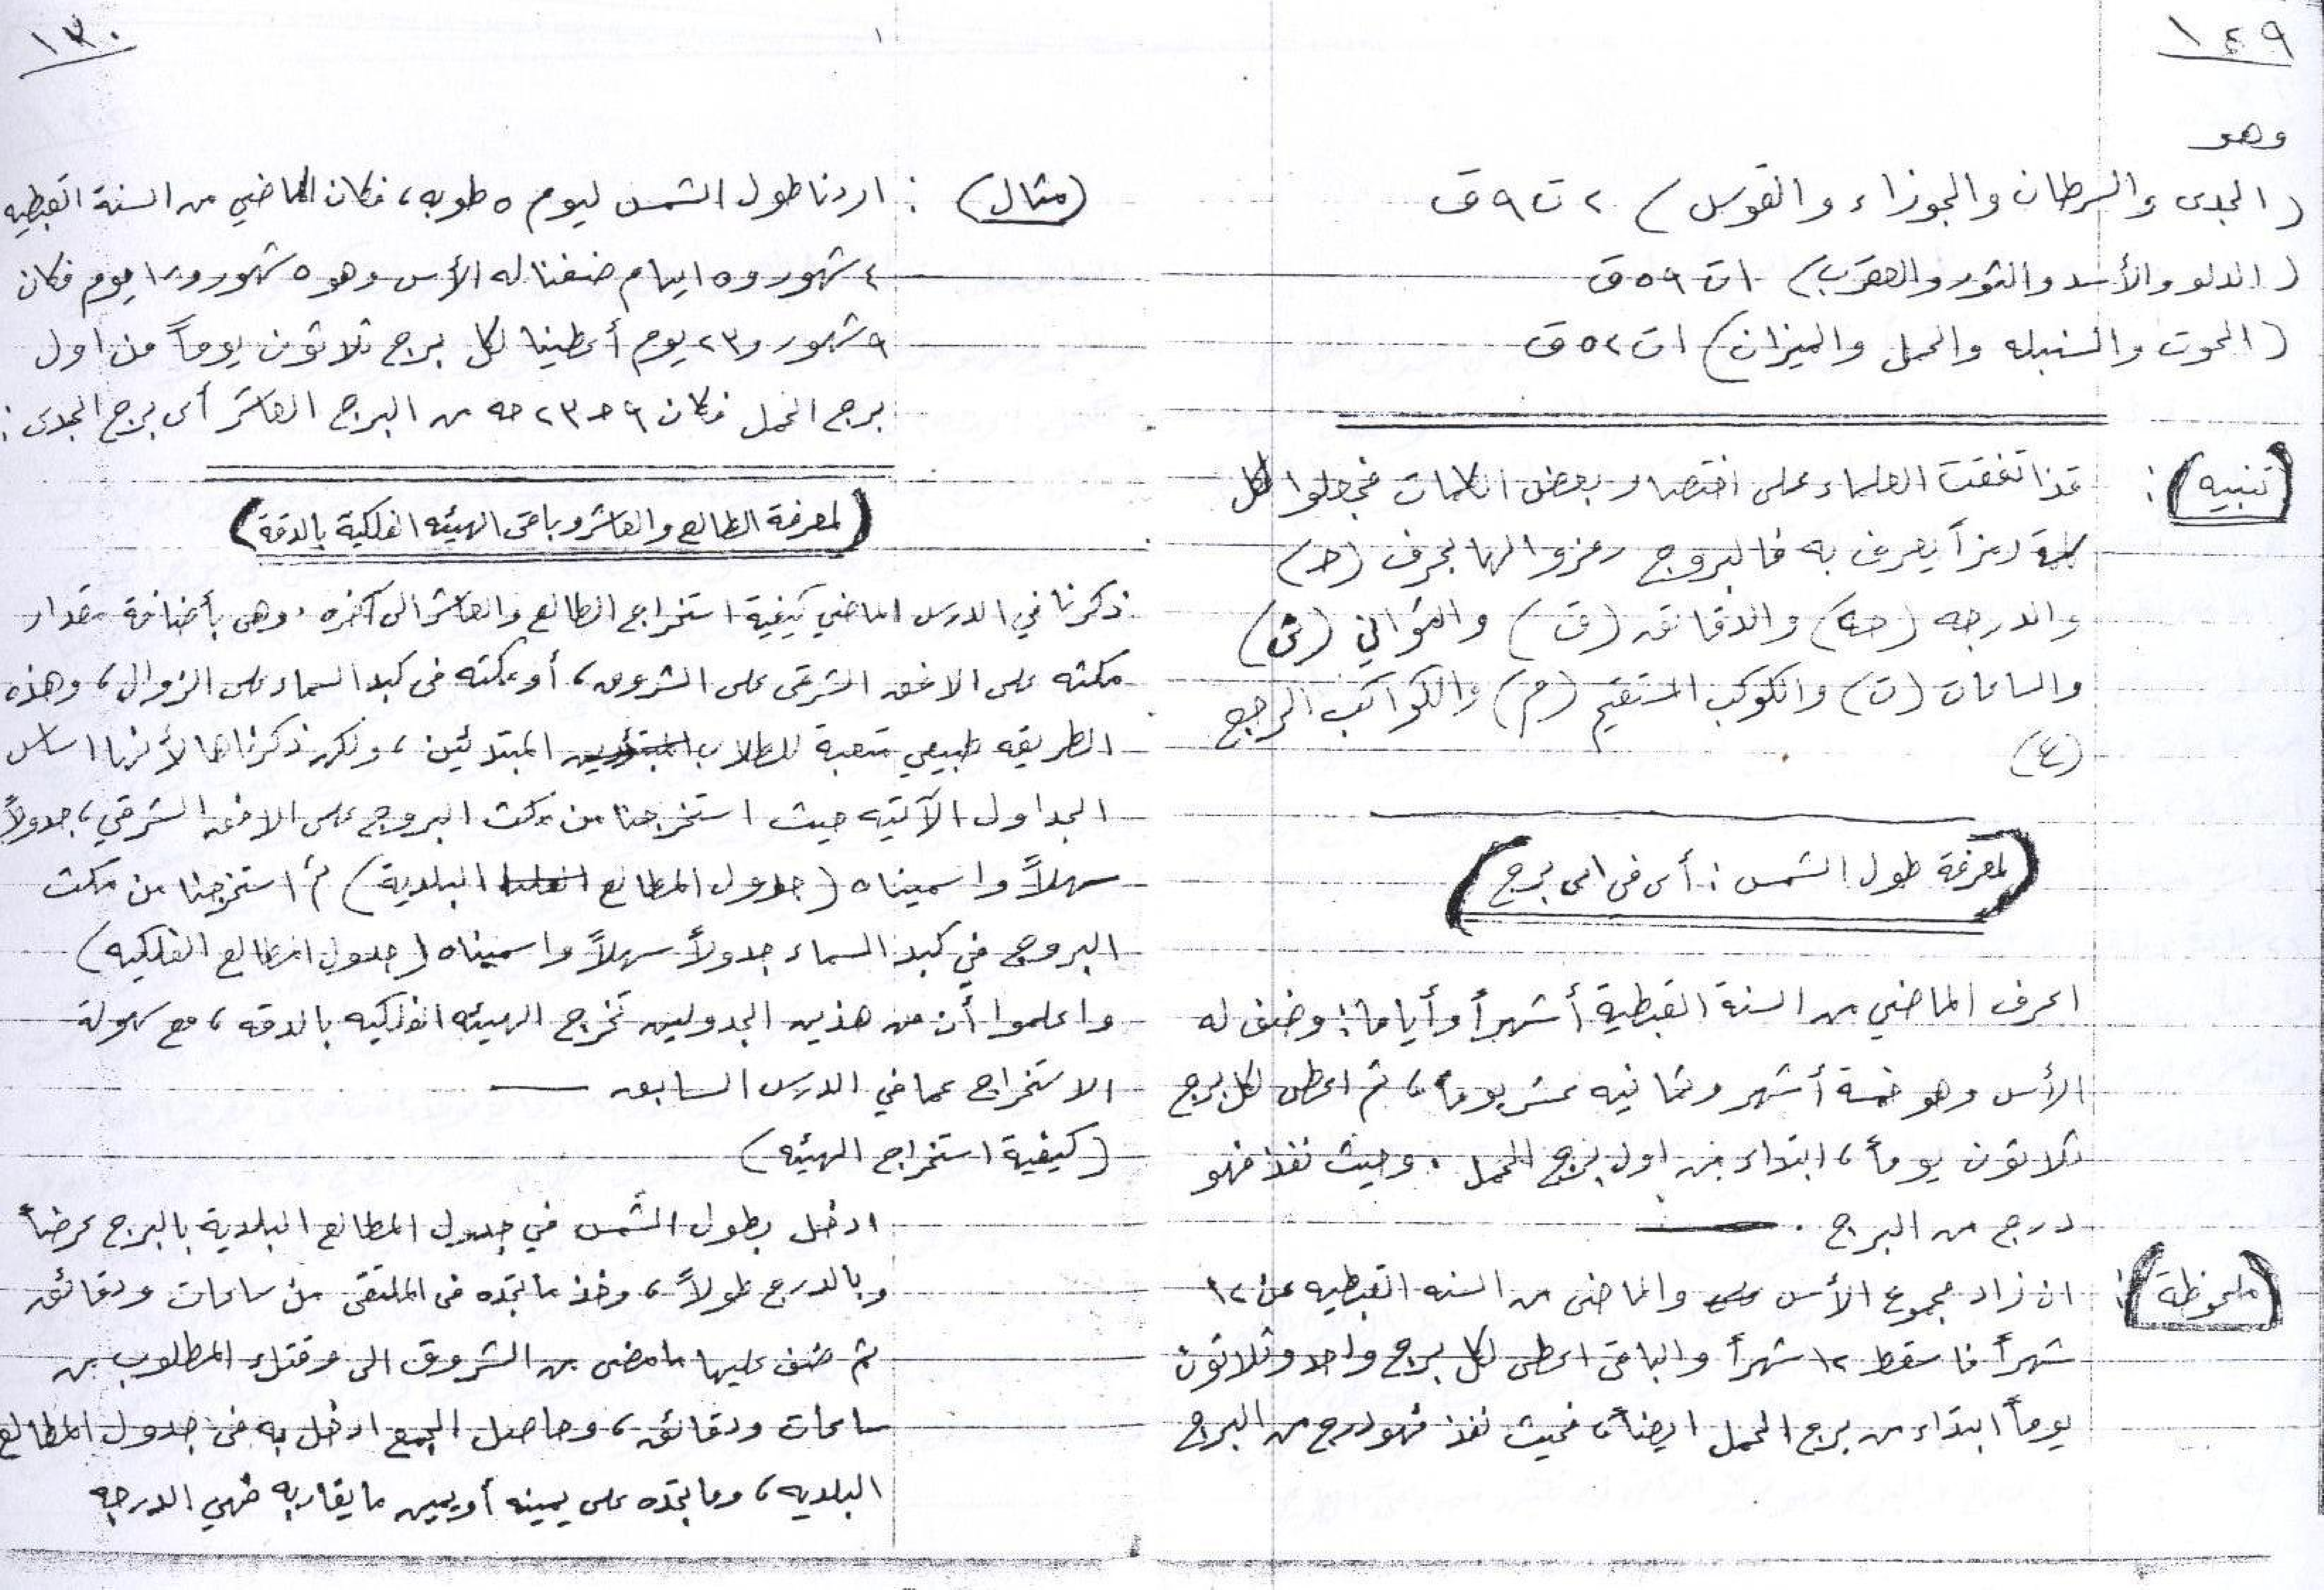 ١٤٩
وهو
(الجدى والسرطان والجوزاء والقوس) ٢ ت ٩ ق
(الدلو والأسد والثور والعقرب) ١ ت ٥٩ ق
(الحوت والسنبله والحمل والميزان) ١ ت ٥٢ ق
(تنبيه) : قد اتفقت العلماء على اختصار بعض الكلمات فجعلوا لكل
كلمة رمزاً يعرف به فالبروج رمزوا لها بحرف (حـ)
والدرجه (حه) والدقائق (ق) والثواني (ث)
والساعات (ت) والكوكب المستقيم (م) والكواكب الراجع
(ع)
(لمعرفة طول الشمس : أى فى اى برج)
اعرف الماضي من السنة القبطية أشهراً وأياماً، وضف له
الأس وهو خمسة أشهر وثمانيه عشر يوماً، ثم اعطى لكل برج
ثلاثون يوماً، ابتداء من اول برج الحمل . وحيث نفذ فهو
درج من البرج .
(ملحوظة) : ان زاد مجموع الأس والماضى من السنه القبطيه عن ١٢
شهراً فاسقط ١٢ شهراً والباقى اعطى لكل برج واحد وثلاثون
يوماً ابتداء من برج الحمل ايضاً، فحيث نفذ فهو درج من البرج
١٣٠
(مثال) : اردنا طول الشمس ليوم ٥ طوبه، فكان الماضي من السنة القبطيه
٤ شهور و ٥ ايام ضفنا له الأس وهو ٥ شهور و ١٨ يوم فكان
٩ شهور و ٢٣ يوم أعطينا لكل برج ثلاثون يوماً من اول
برج الحمل فكان ٩ حـ ٢٣ حه من البرج العاشر أى برج الجدى :
(لمعرفة الطالع والعاشر وباقى الهيئه الفلكية بالدقة)
ذكرنا في الدرس الماضي كيفية استخراج الطالع والعاشر الى آخره . وهى بأضافة مقدار
مكثه على الافق الشرقى على الشروق، أو مكثه فى كبد السماء على الزوال، وهذه
الطريقه طبيعي متعبة للطلاب المبتدئين، ولكن ذكرناها لأنها اساس
الجداول الآتيه حيث استخرجنا من مكث البروج على الافق الشرقي، جدولاً
سهلاً واسميناه (جدول المطالع البلدية) ثم استخرجنا من مكث
البروج في كبد السماء جدولاً سهلاً واسميناه (جدول المطالع الفلكيه)
واعلموا أن من هذين الجدولين تخرج الهيئه الفلكيه بالدقه، مع سهولة
الاستخراج عما في الدرس السابق
(كيفية استخراج الهيئه)
ادخل بطول الشمس في جدول المطالع البلدية بالبرج عرضاً
وبالدرج طولاً، وخذ ما تجده فى الملتقى من ساعات ودقائق
ثم ضف عليها ما مضى من الشروق الى وقتك المطلوب من
ساعات ودقائق، وحاصل الجمع ادخل به فى جدول المطالع
البلديه، وما تجده على يمينه أو يمين ما يقاربه فهي الدرجه